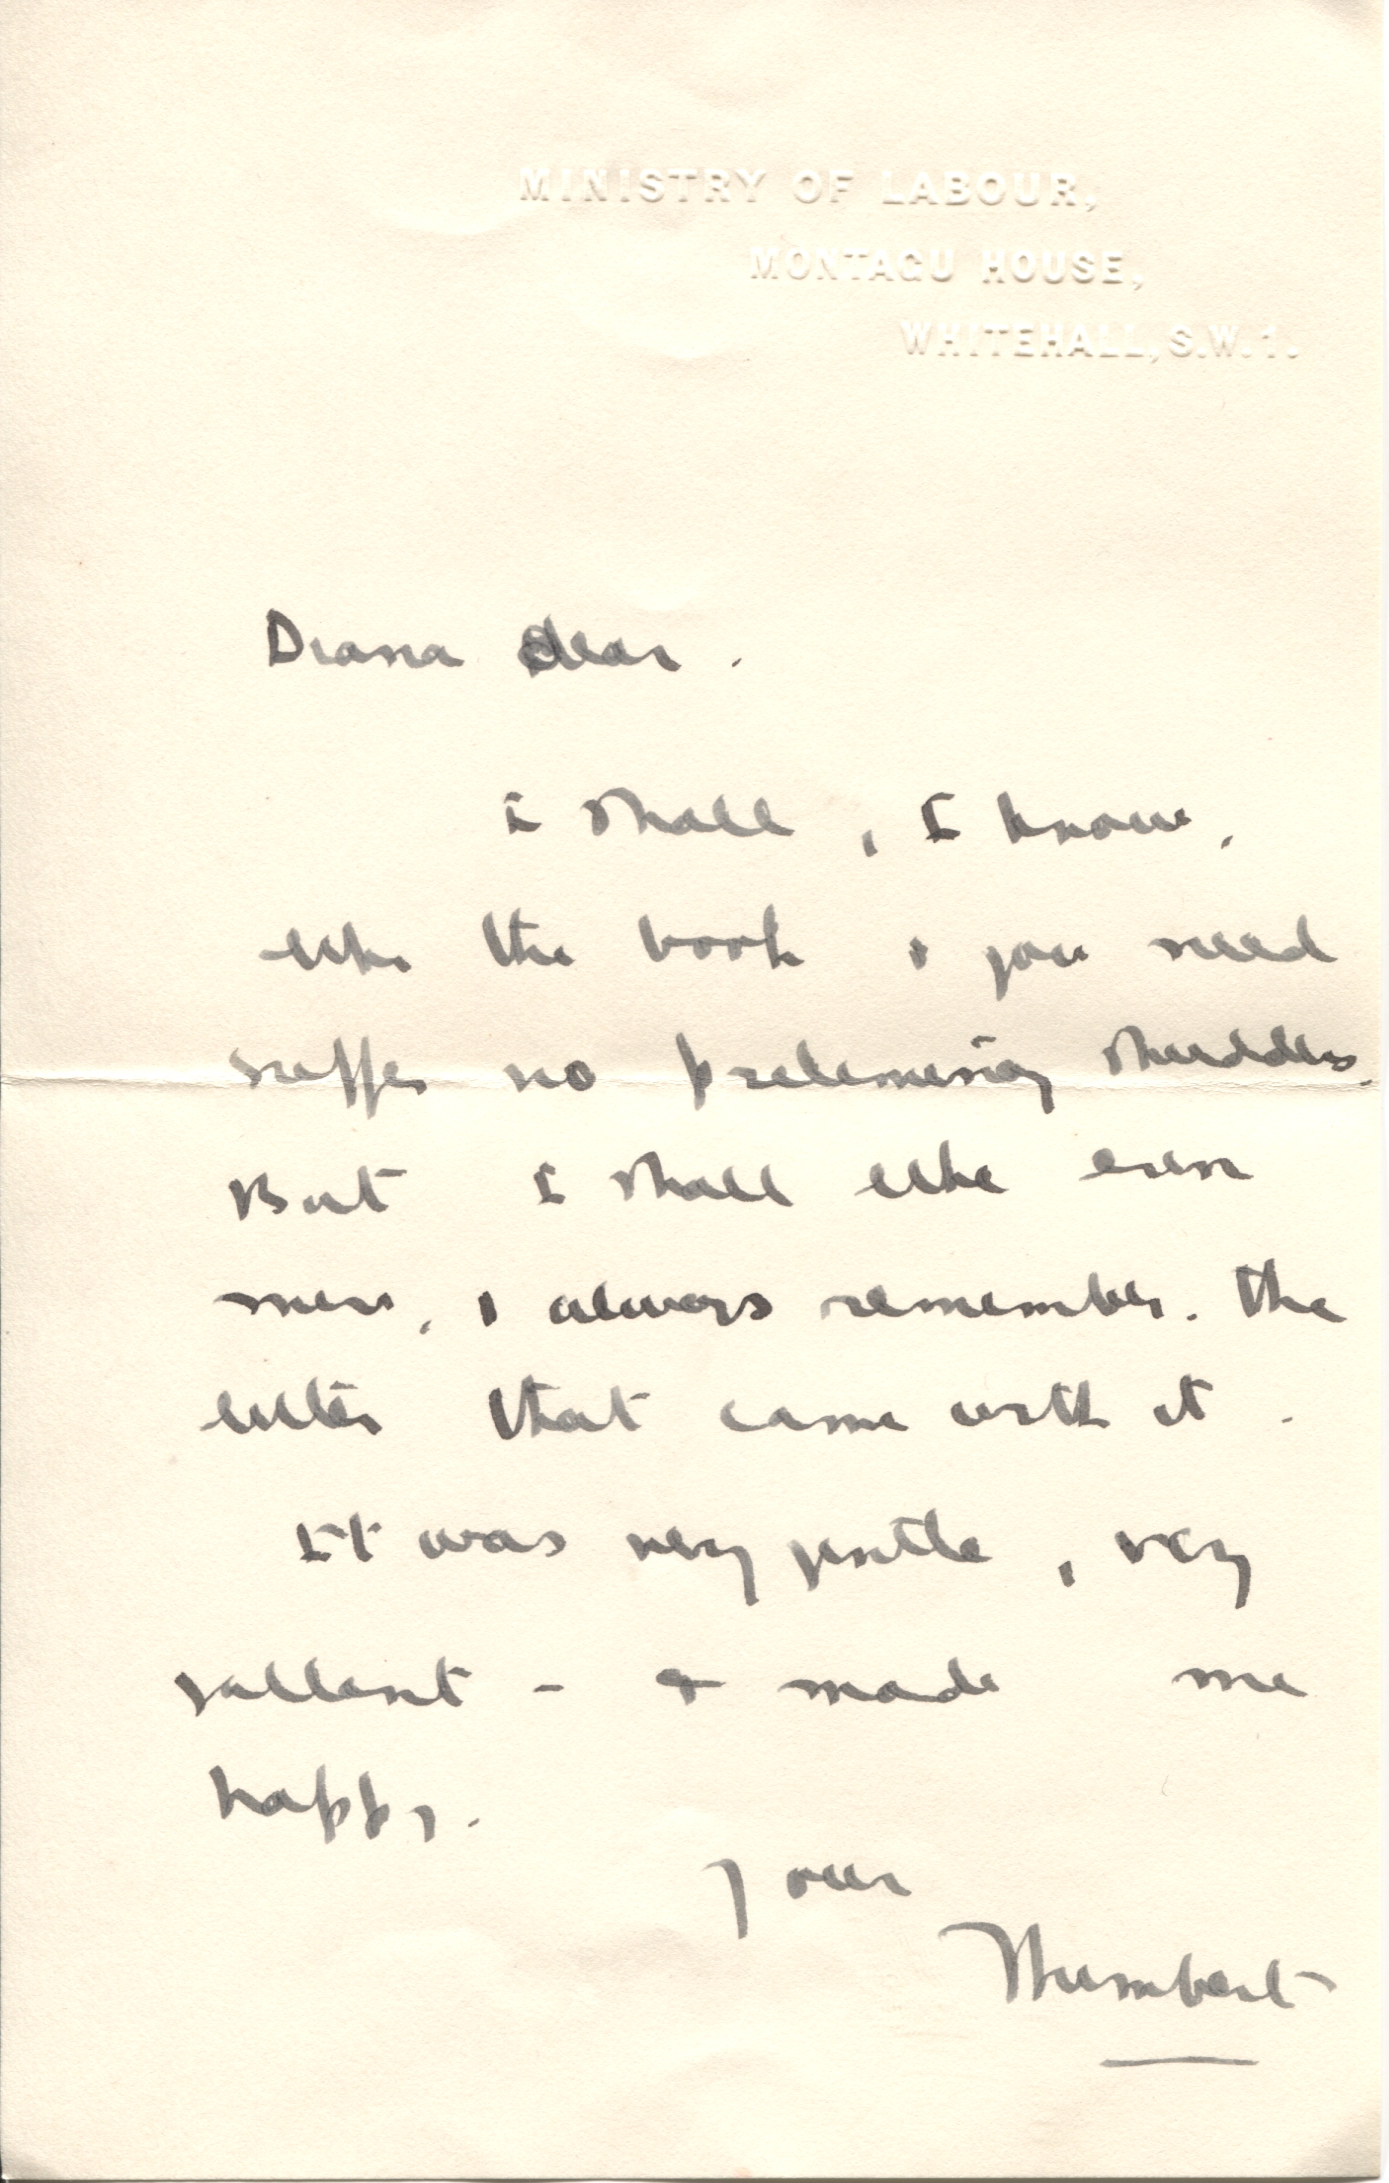 MINISTRY OF LABOUR,
MONTAGU HOUSE,
WHITEHALL, S.W.1.
Diana dear.
I shall, I know,
like the book & you need
suffer no preliminary shudders.
But I shall like even
more, & always remember. the
letter that came with it.
It was very gentle, very
gallant - & made me
happy.
Your